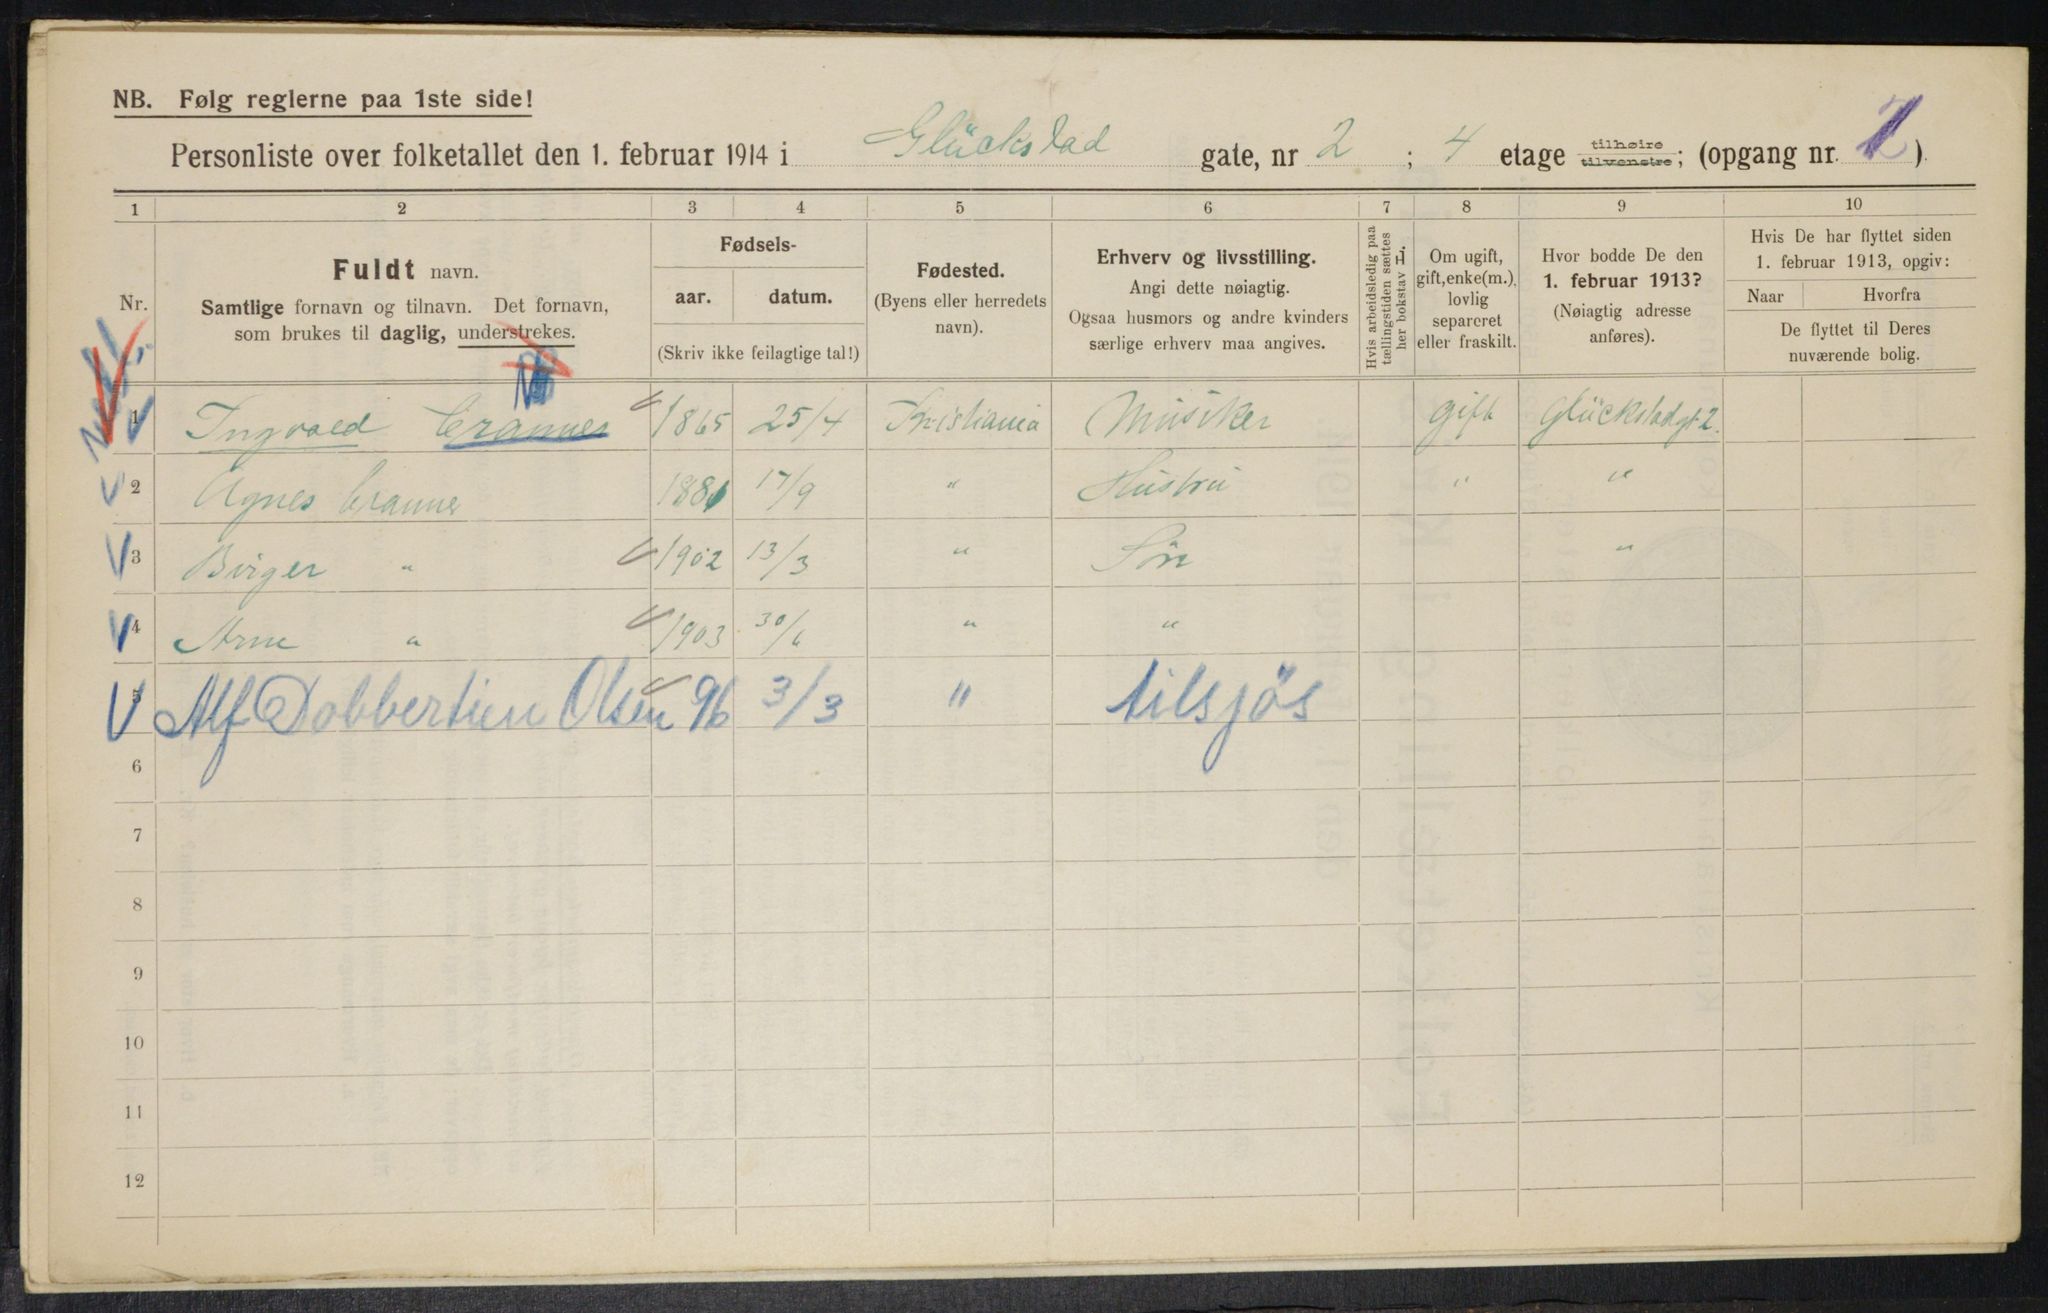 NB. Følg reglerne paa 1ste side!
Personliste over folketallet den 1. februar 1914 i Glückstad gate, nr 2 ; 4 etage tilhøire tilvenstre; (opgang nr. 2).
1 2 3 4 5 6 7 8 9 10
Nr.
Fuldt navn.
Samtlige fornavn og tilnavn. Det fornavn,
som brukes til daglig, understrekes.
Fødsels-
aar. datum.
(Skriv ikke feilagtige tal!)
Fødested.
(Byens eller herredets
navn).
Erhverv og livsstilling.
Angi dette nøiagtig.
Ogsaa husmors og andre kvinders
særlige erhverv maa angives.
Hvis arbeidsledig paa
tællingstiden sættes
her bokstav L.
Om ugift,
gift, enke(m.),
lovlig
separeret
eller fraskilt.
Hvor bodde De den
1. februar 1913?
(Nøiagtig adresse
anføres).
Hvis De har flyttet siden
1. februar 1913, opgiv:
Naar Hvorfra
De flyttet til Deres
nuværende bolig.
1 Ingvald Cranner 1865 25/4 Kristiania Musiker gift Glückstadgt 2.
2 Agnes Cranner 1881 17/9 " Hustru " "
3 Birger " 1902 13/3 " Sön "
4 Arne " 1903 30/6 " "
5 Alf Dobbertien Olsen 96 3/3 " tilsjös
6
7
8
9
10
11
12